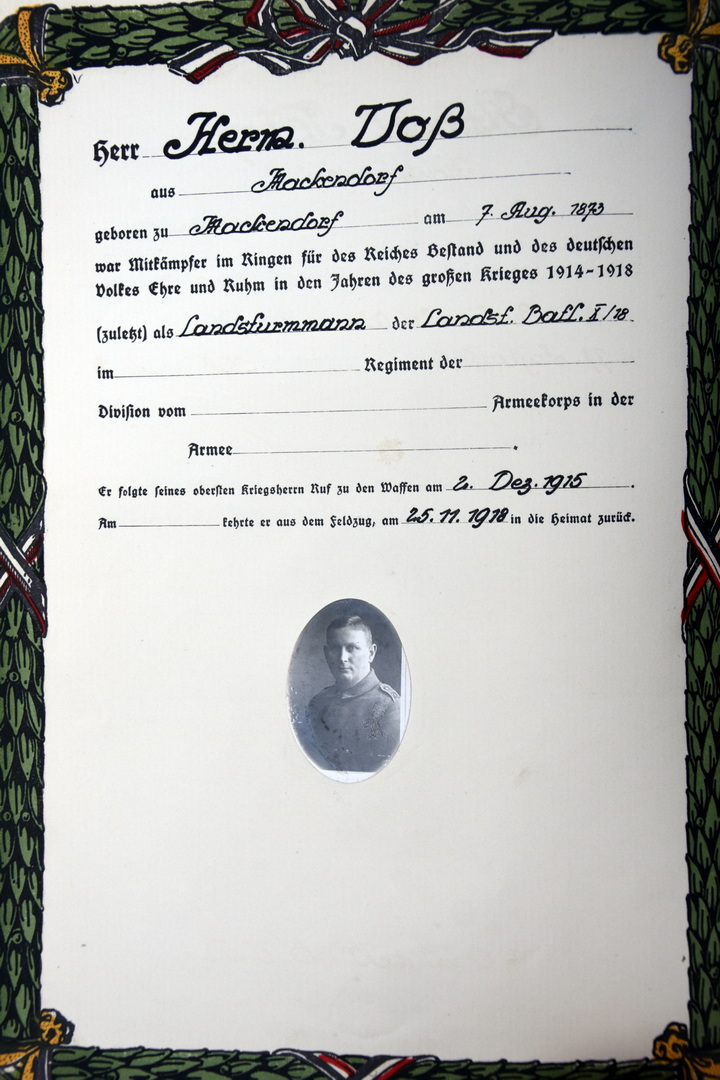 Herr Herm. Voß
aus Mackendorf
geboren zu Mackendorf am 7. Aug. 1873
war Mitkämpfer im Ringen für des Reiches Bestand und des deutschen
Volkes Ehre und Ruhm in den Jahren des großen Krieges 1914-1918
(zuletzt) als Landsturmmann der Landst. Batl. X/18
im Regiment der
Division vom Armeekorps in der
Armee .
Er folgte seines obersten Kriegsherrn Ruf zu den Waffen am 2. Dez. 1915 .
Am kehrte er aus dem Feldzug, am 25. 11. 1918 in die Heimat zurück.